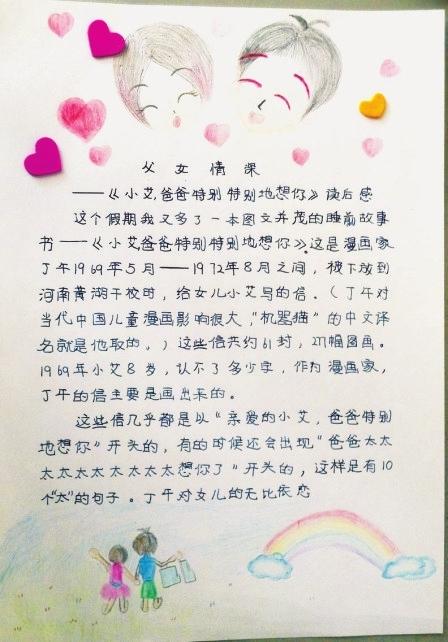 父女情深
——《小艾,爸爸特别特别地想你》读后感
这个假期我又多了一本图文并茂的睡前故事
书——《小艾爸爸特别特别地想你》。这是漫画家
丁午1969年5月——1972年8月之间，被下放到
河南黄湖干校时，给女儿小艾写的信。（丁午对
当代中国儿童漫画影响很大，“机器猫”的中文译
名就是他取的。）这些信共约61封，271幅图画。
1969年小艾8岁，认不了多少字，作为漫画家，
丁午的信主要是画出来的。
这些信几乎都是以“亲爱的小艾，爸爸特别
地想你”开头的，有的时候还会出现“爸爸太太
太太太太太太太太想你了”开头的，这样足有10
个“太”的句子。丁午对女儿的无比依恋